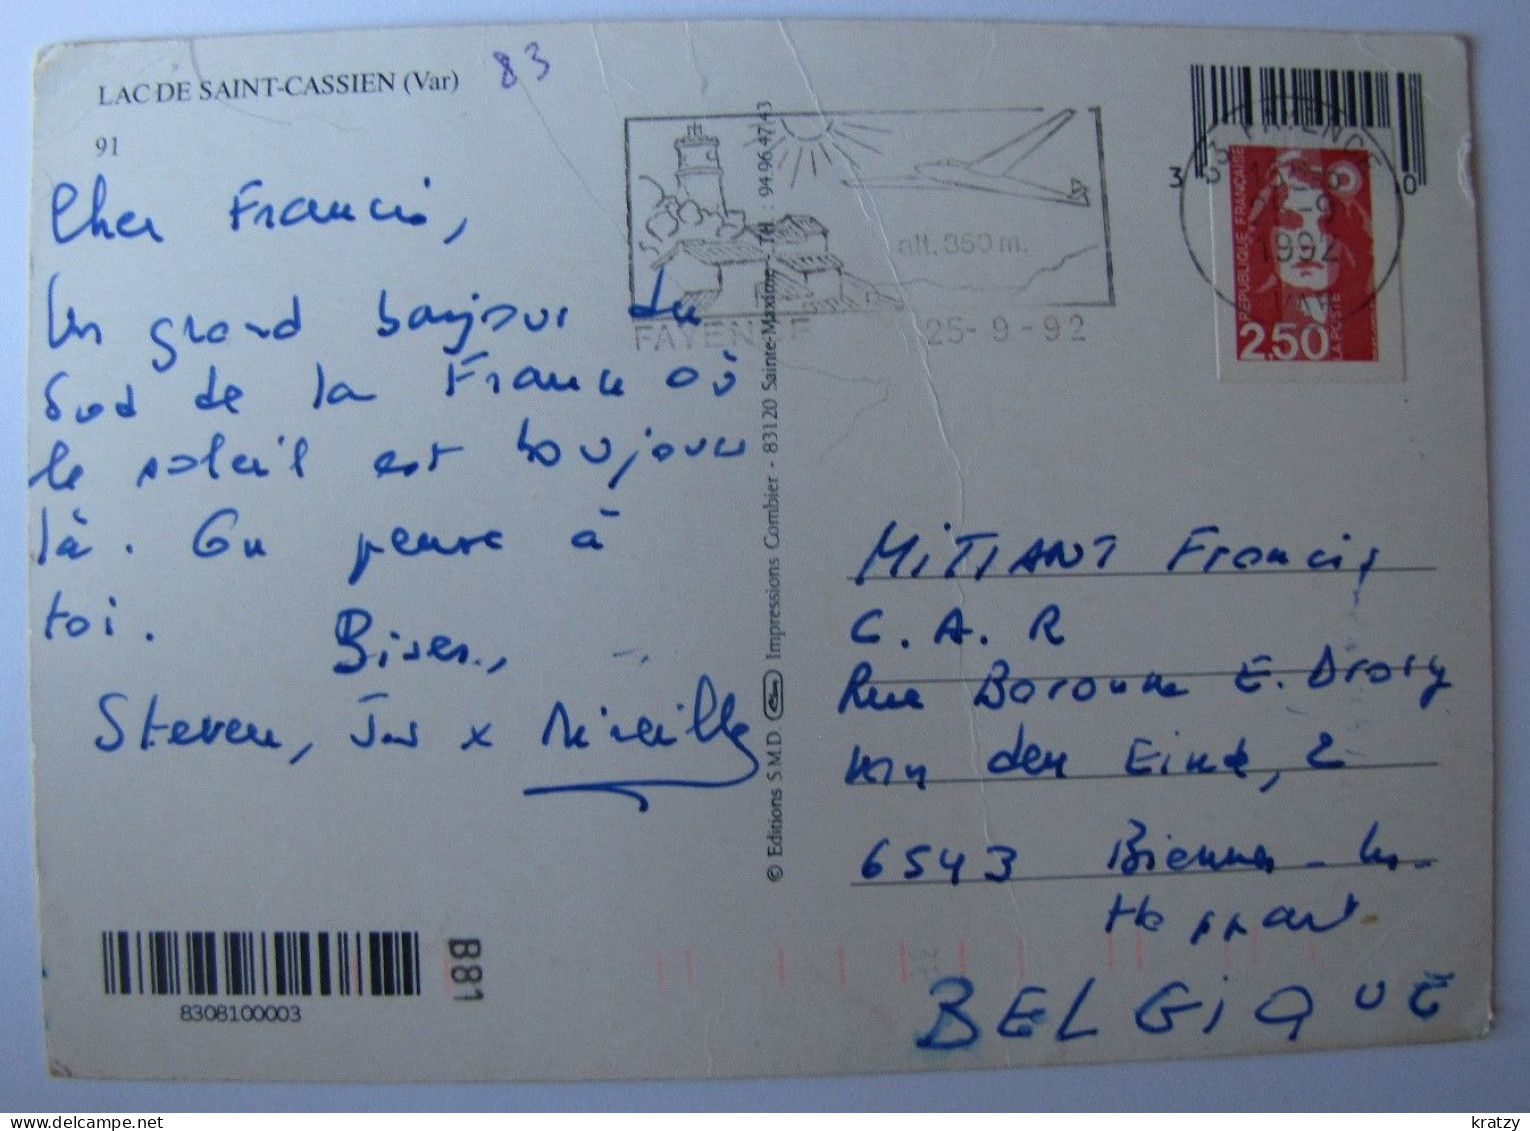 LAC DE SAINT-CASSIEN (Var)
83
91
Cher Francis,
Un grand bonjour du
Sud de la France où
le soleil est toujours
là. On pense à
toi.
Bises,
Steven, x Mireille
© Editions S.M.D. Impressions Combier - 83120 Sainte-Maxime - Tél. : 94.96.47.43
alt. 350 m.
FAYENCE
25-9-92
83 FAYENCE
25-9
1992
VAR
3
0
REPUBLIQUE FRANÇAISE
LA POSTE
2,50
MITIANT Francis
C.A.R
Rue Baronne E. Drory
van den Einde, 2
6543 Bienne-lez-
Happart
BELGIQUE
8308100003
B81
kratzy